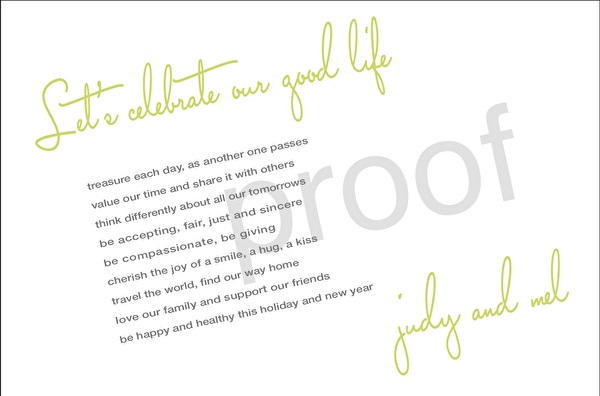 Let's celebrate our good life
treasure each day, as another one passes
value our time and share it with others
think differently about all our tomorrows
be accepting, fair, just and sincere
be compassionate, be giving
cherish the joy of a smile, a hug, a kiss
travel the world, find our way home
love our family and support our friends
be happy and healthy this holiday and new year
proof
judy and mel